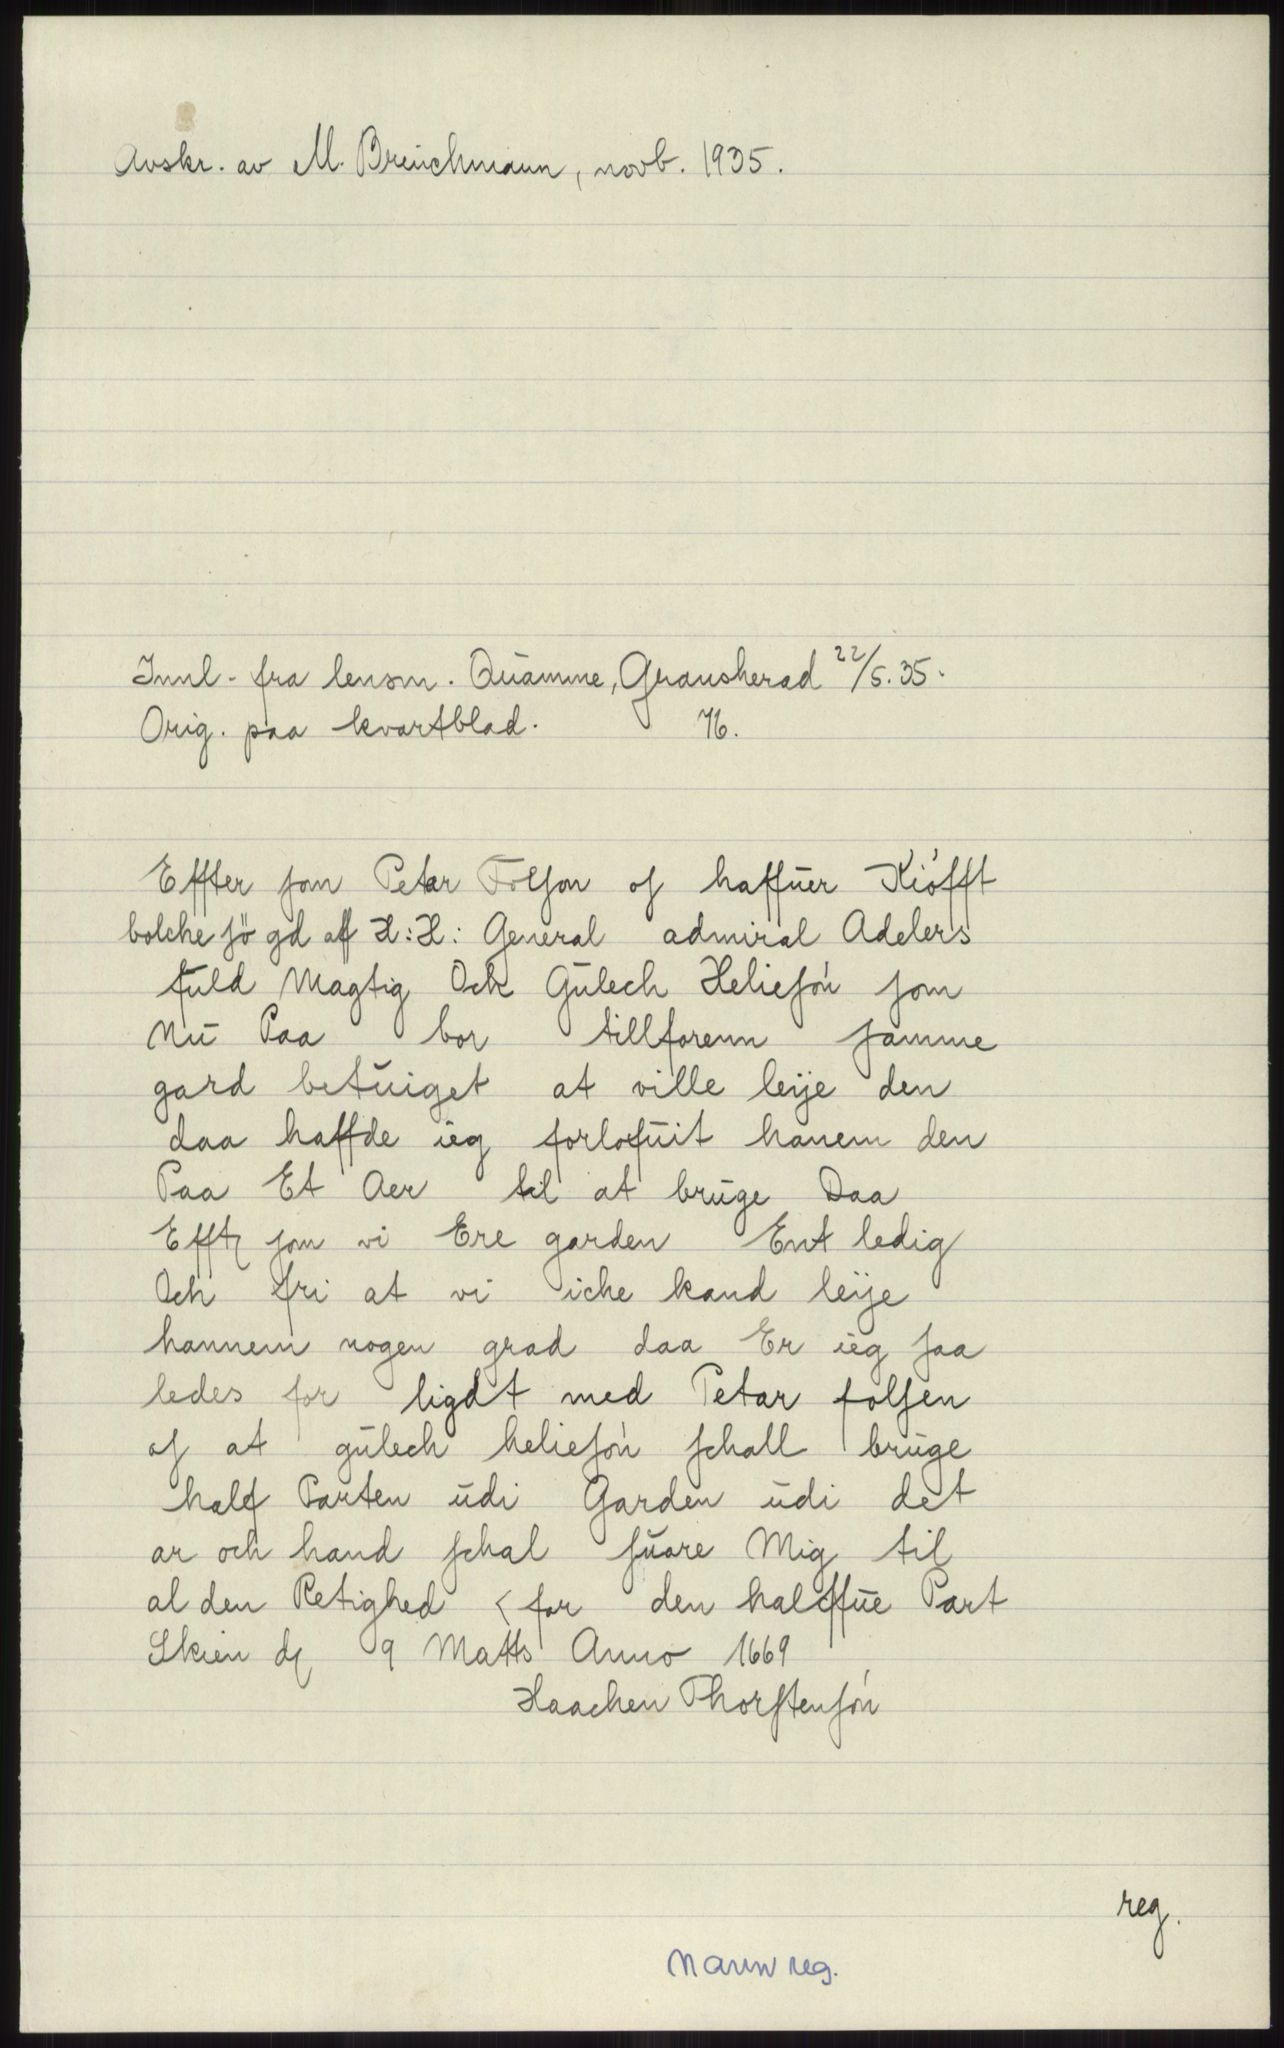 Avskr. av M. Breuichmann, novb. 1935.
Innl. fra lensm. Qŭamme, Gransherad 22/5.35.
Orig. paa kvartblad. 76.
Effter som Petar Folson os haffŭer Kiófft
bolchesjö gd aff H:H: General admiral Adelers
fŭld Magtig Och Gŭlech Heliesón som
Nŭ Paa bor tillforenn samme
gard betŭiget at ville leije den
daa haffde ieg forlofŭit hanem den
Paa Et Aer til at brŭge Daa
Efft som vi Ere garden Ent ledig
Och fri at vi iche kand leije
hannem nogen grad daa Er ieg saa
ledes for ligdt med Petar folsen
os at gŭlech heliesón schall brŭge
half Parten ŭdi Garden ŭdi det
ar och hand schal sŭare Mig til
al den Retighed < for den halffŭe Part
Skien d 9 Matts Anno 1669
Haachen Thorstensón
reg.
Navn reg.